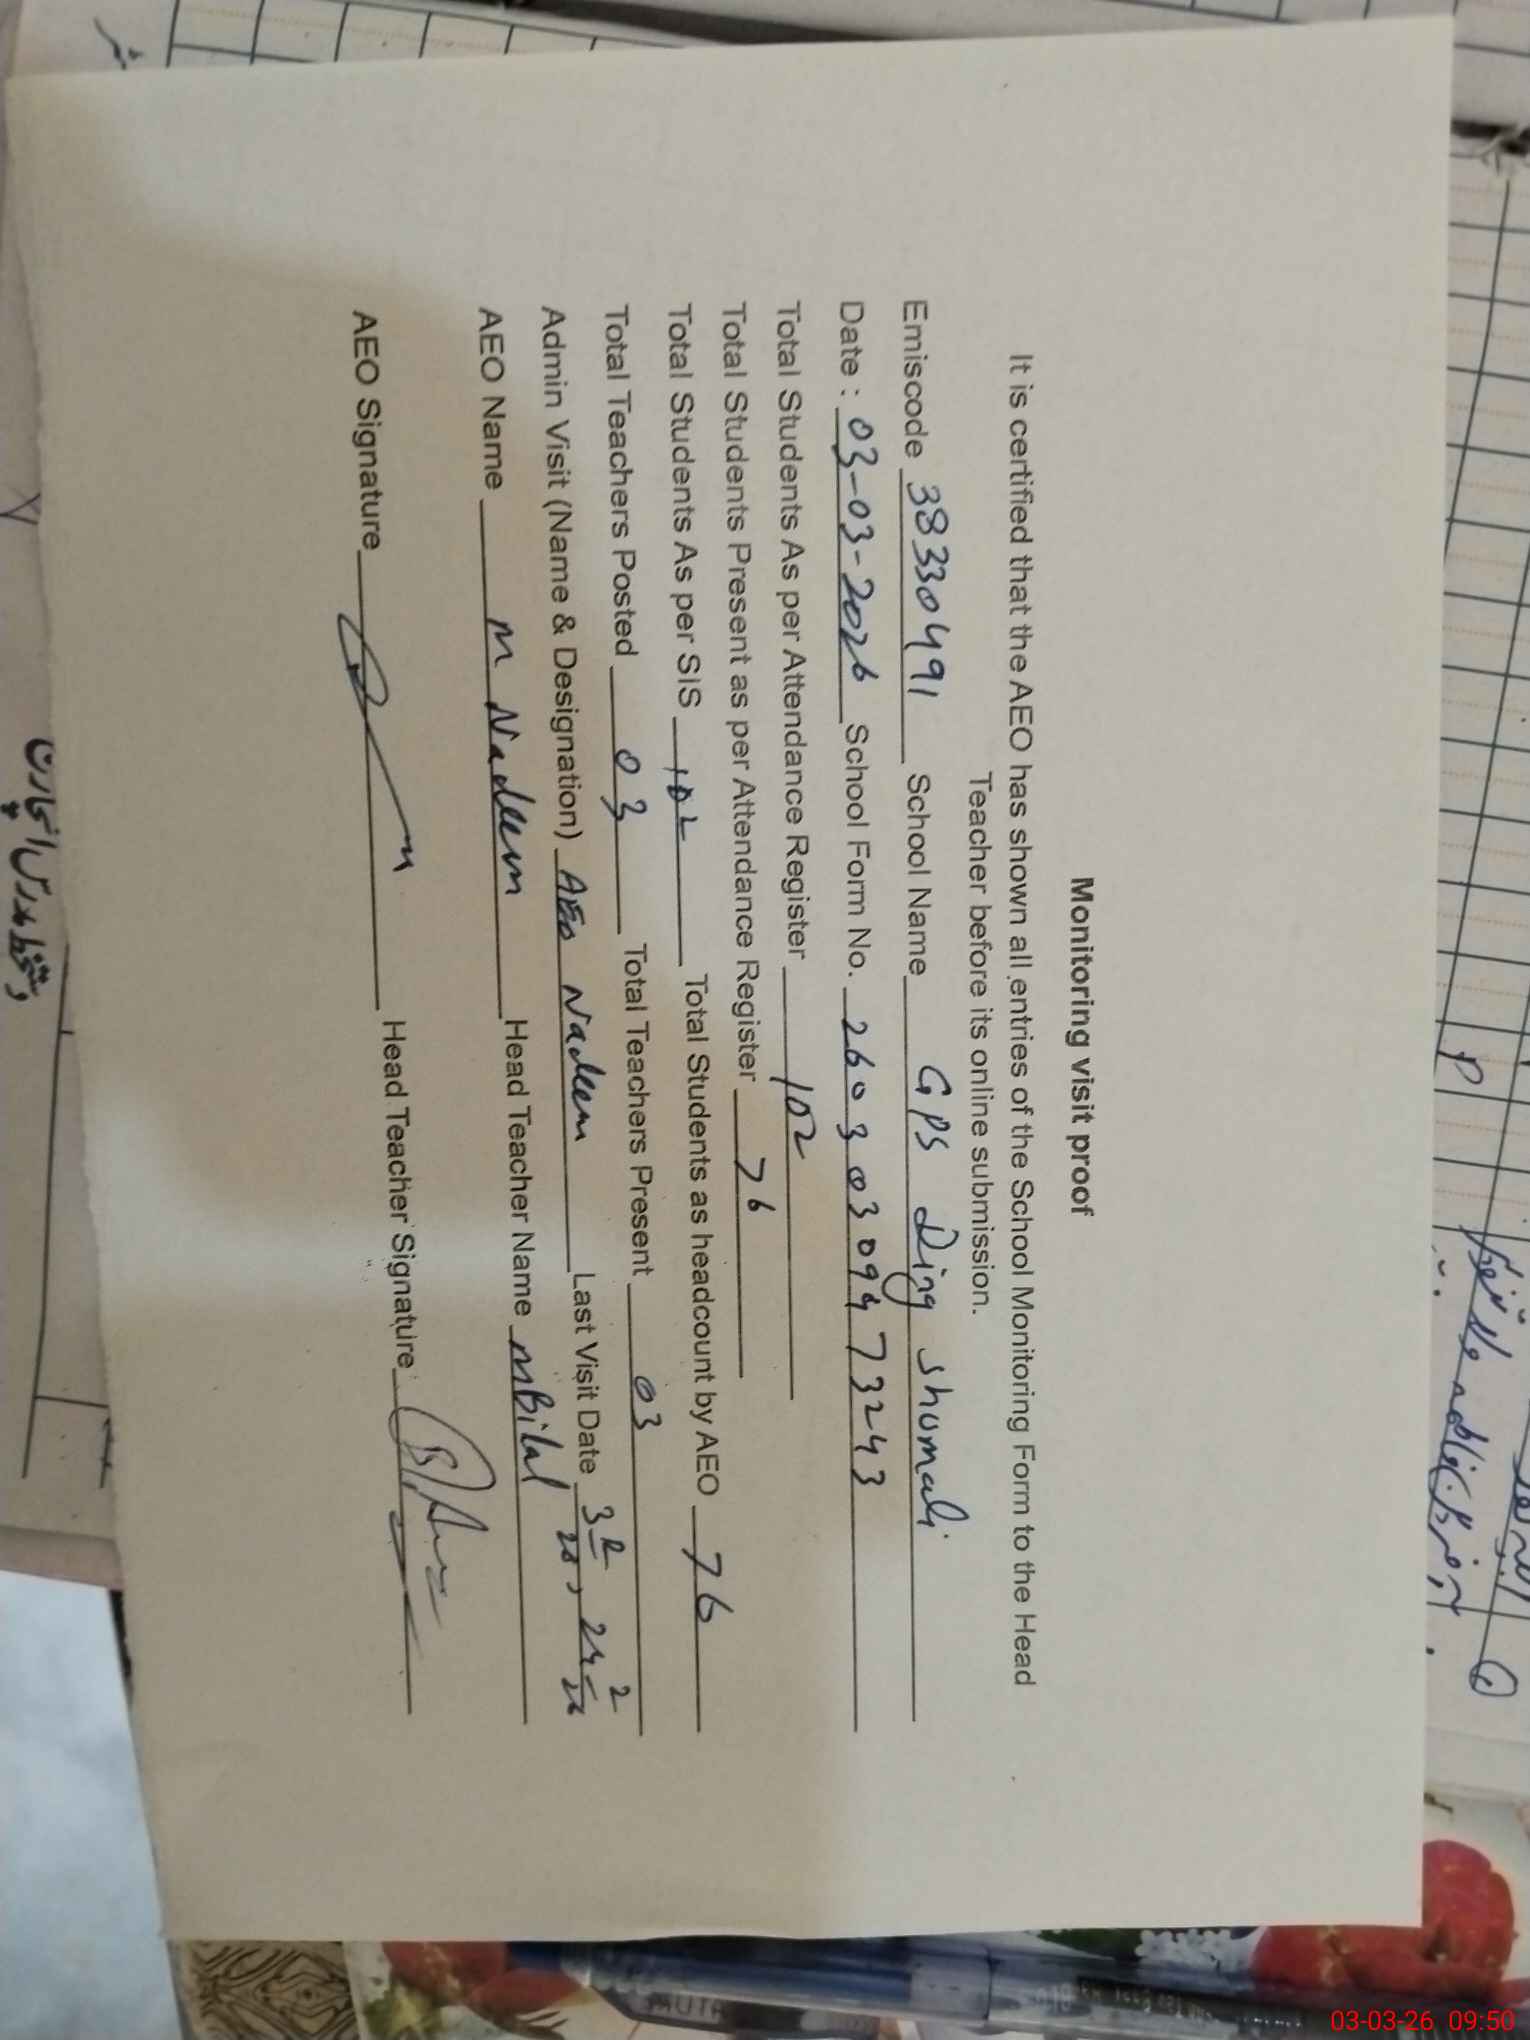 Monitoring visit proof
It is certified that the AEO has shown all entries of the School Monitoring Form to the Head
Teacher before its online submission.
Emiscode 38330491 School Name GPS Ding shumali
Date : 03-03-2026 School Form No. 26030309473243
Total Students As per Attendance Register 102
Total Students Present as per Attendance Register 76
Total Students As per SIS 102 Total Students as headcount by AEO 76
Total Teachers Posted 03 Total Teachers Present 03
Admin Visit (Name & Designation) AEO Nadeem Last Visit Date
AEO Name M Nadeem Head Teacher Name M Bilal
AEO Signature Head Teacher Signature
03-03-26 09:50